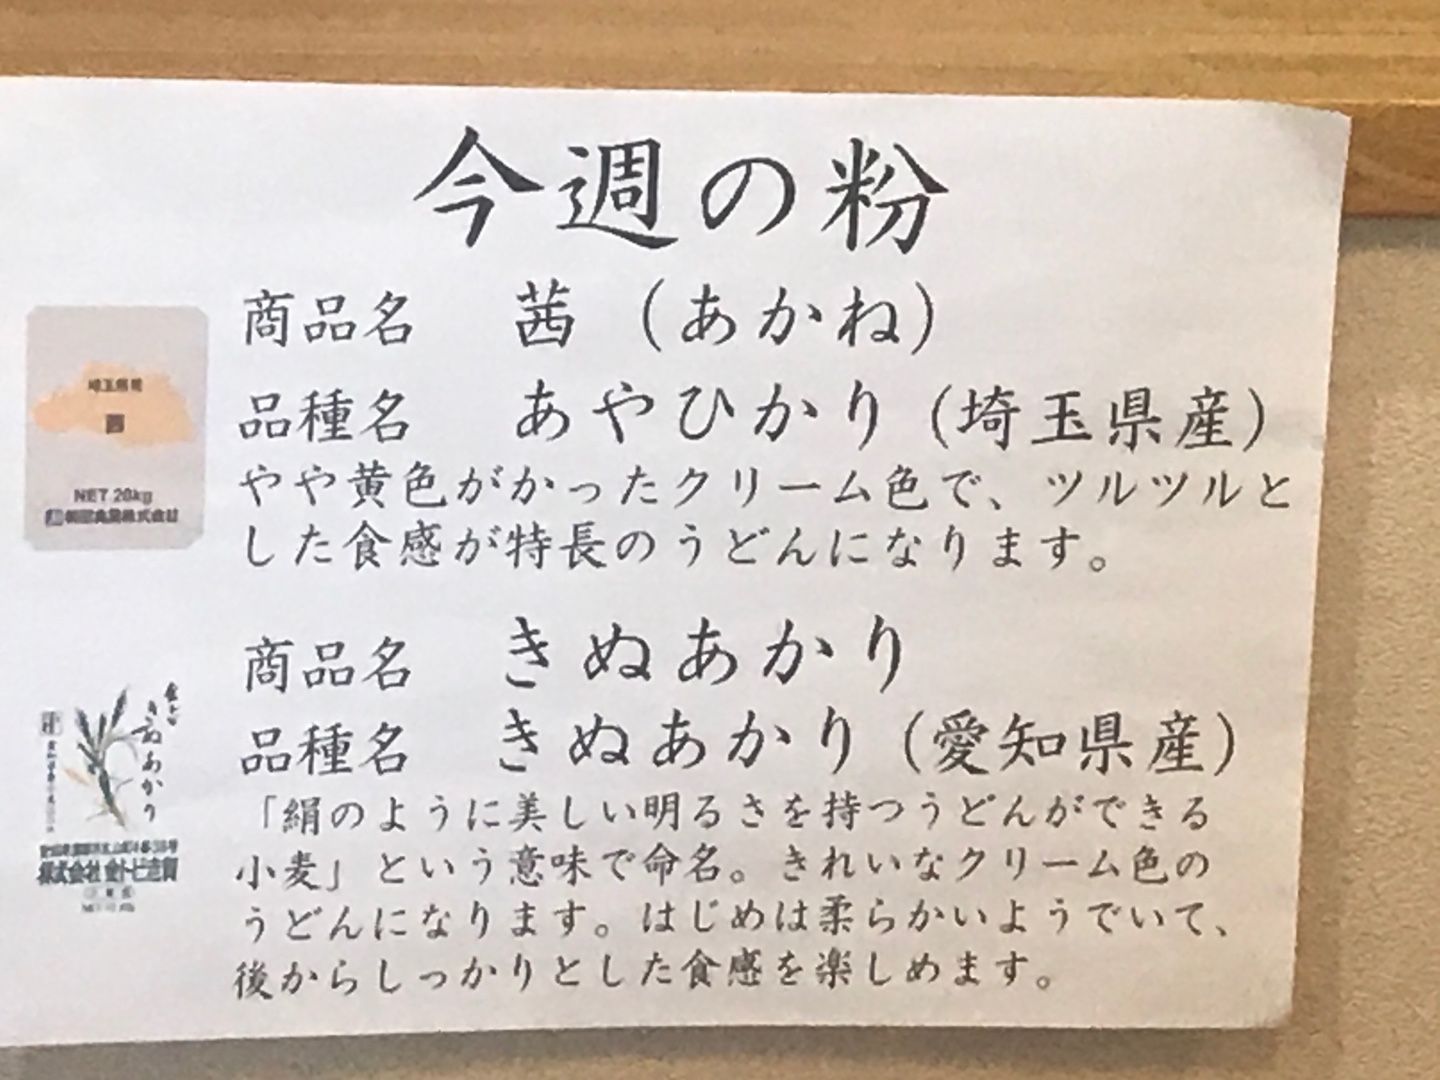 今週の粉
商品名　茜（あかね）
品種名　あやひかり（埼玉県産）
やや黄色がかったクリーム色で、ツルツルと
した食感が特長のうどんになります。
NET 20kg
商品名　きぬあかり
品種名　きぬあかり（愛知県産）
「絹のように美しい明るさを持つうどんができる
小麦」という意味で命名。きれいなクリーム色の
うどんになります。はじめは柔らかいようでいて、
後からしっかりとした食感を楽しめます。
きぬあかり
株式会社